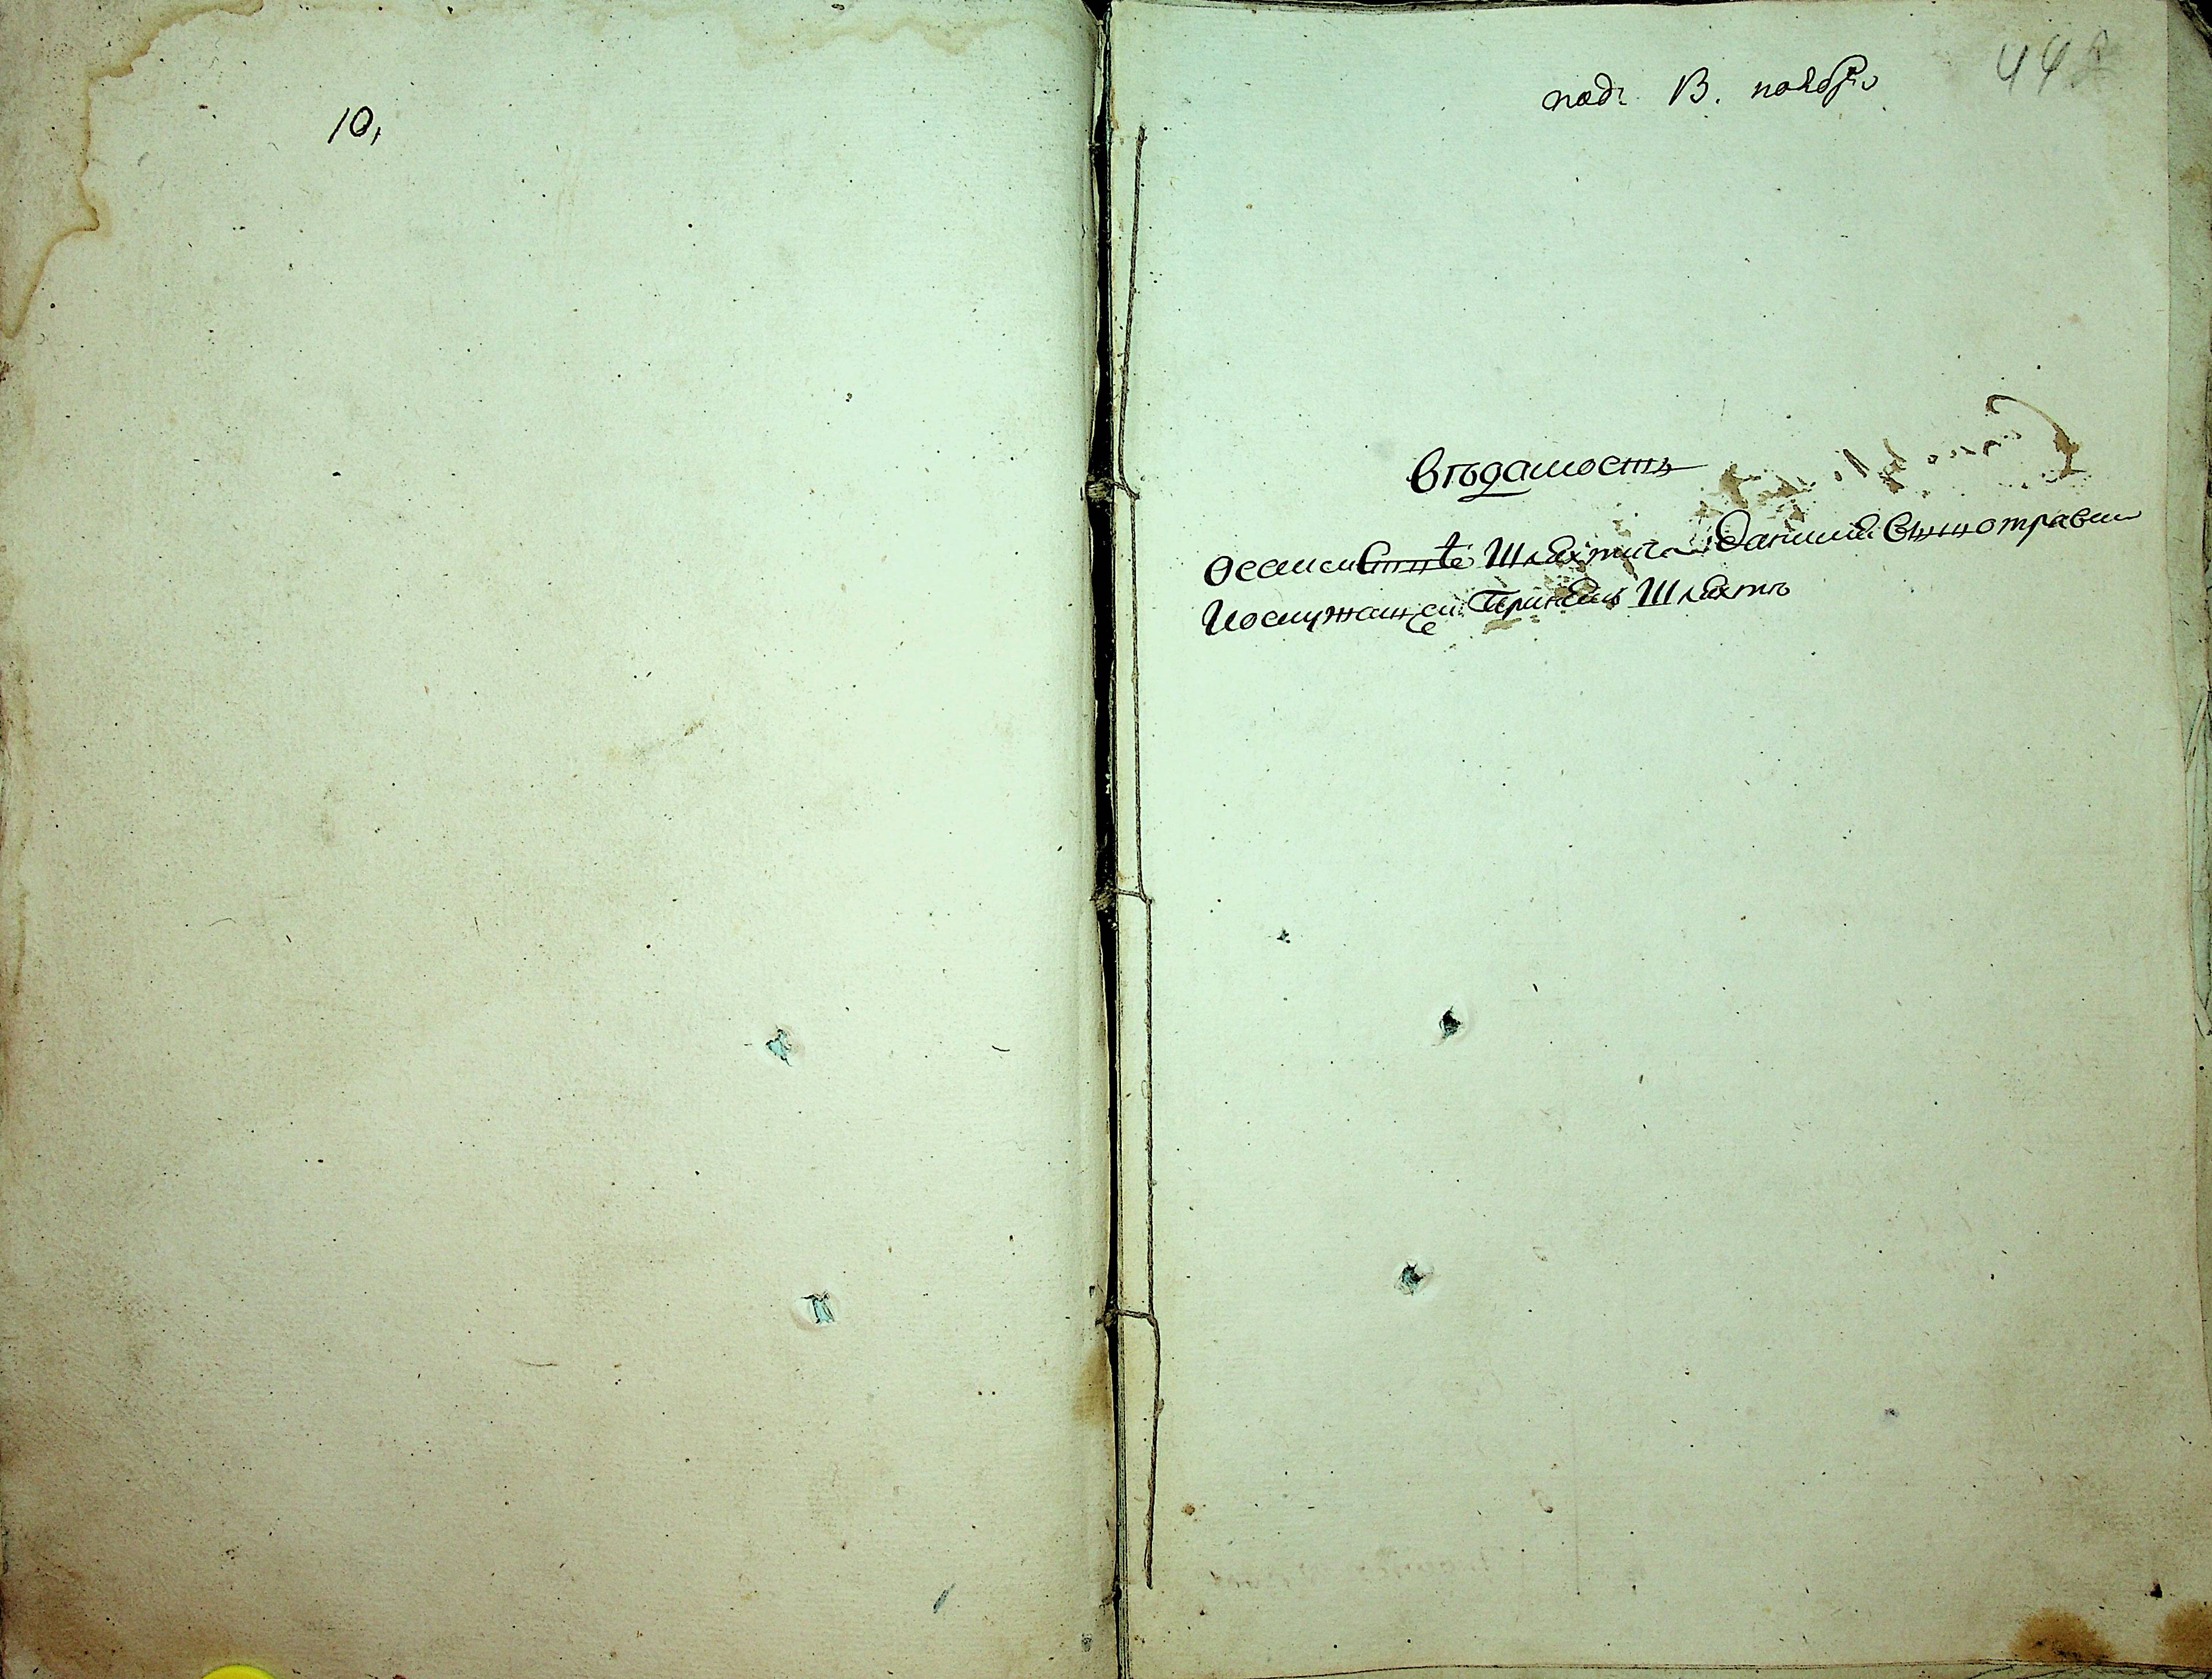 10,
под: В. ноября
442
Вѣдомость
Осемействе Шляхтича Данилы Винотравки
Иослужащеи Принемъ Шляхтѣ